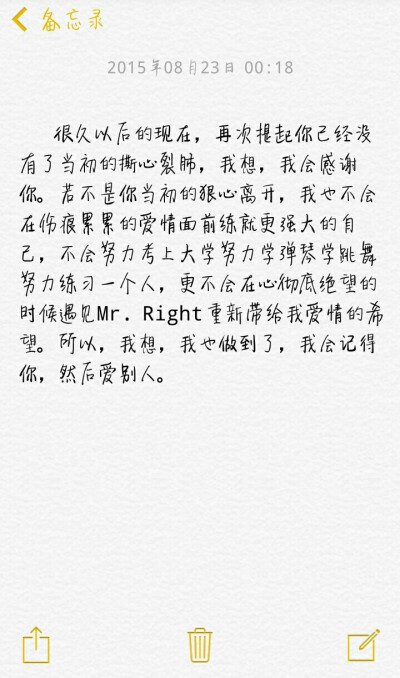 备忘录
2015年08月23日 00:18
很久以后的现在，再次提起你已经没
有了当初的撕心裂肺，我想，我会感谢
你。若不是你当初的狠心离开，我也不会
在伤痕累累的爱情面前练就更强大的自
己，不会努力考上大学努力学弹琴学跳舞
努力练习一个人，更不会在心彻底绝望的
时候遇见Mr. Right重新带给我爱情的希
望。所以，我想，我也做到了，我会记得
你，然后爱别人。